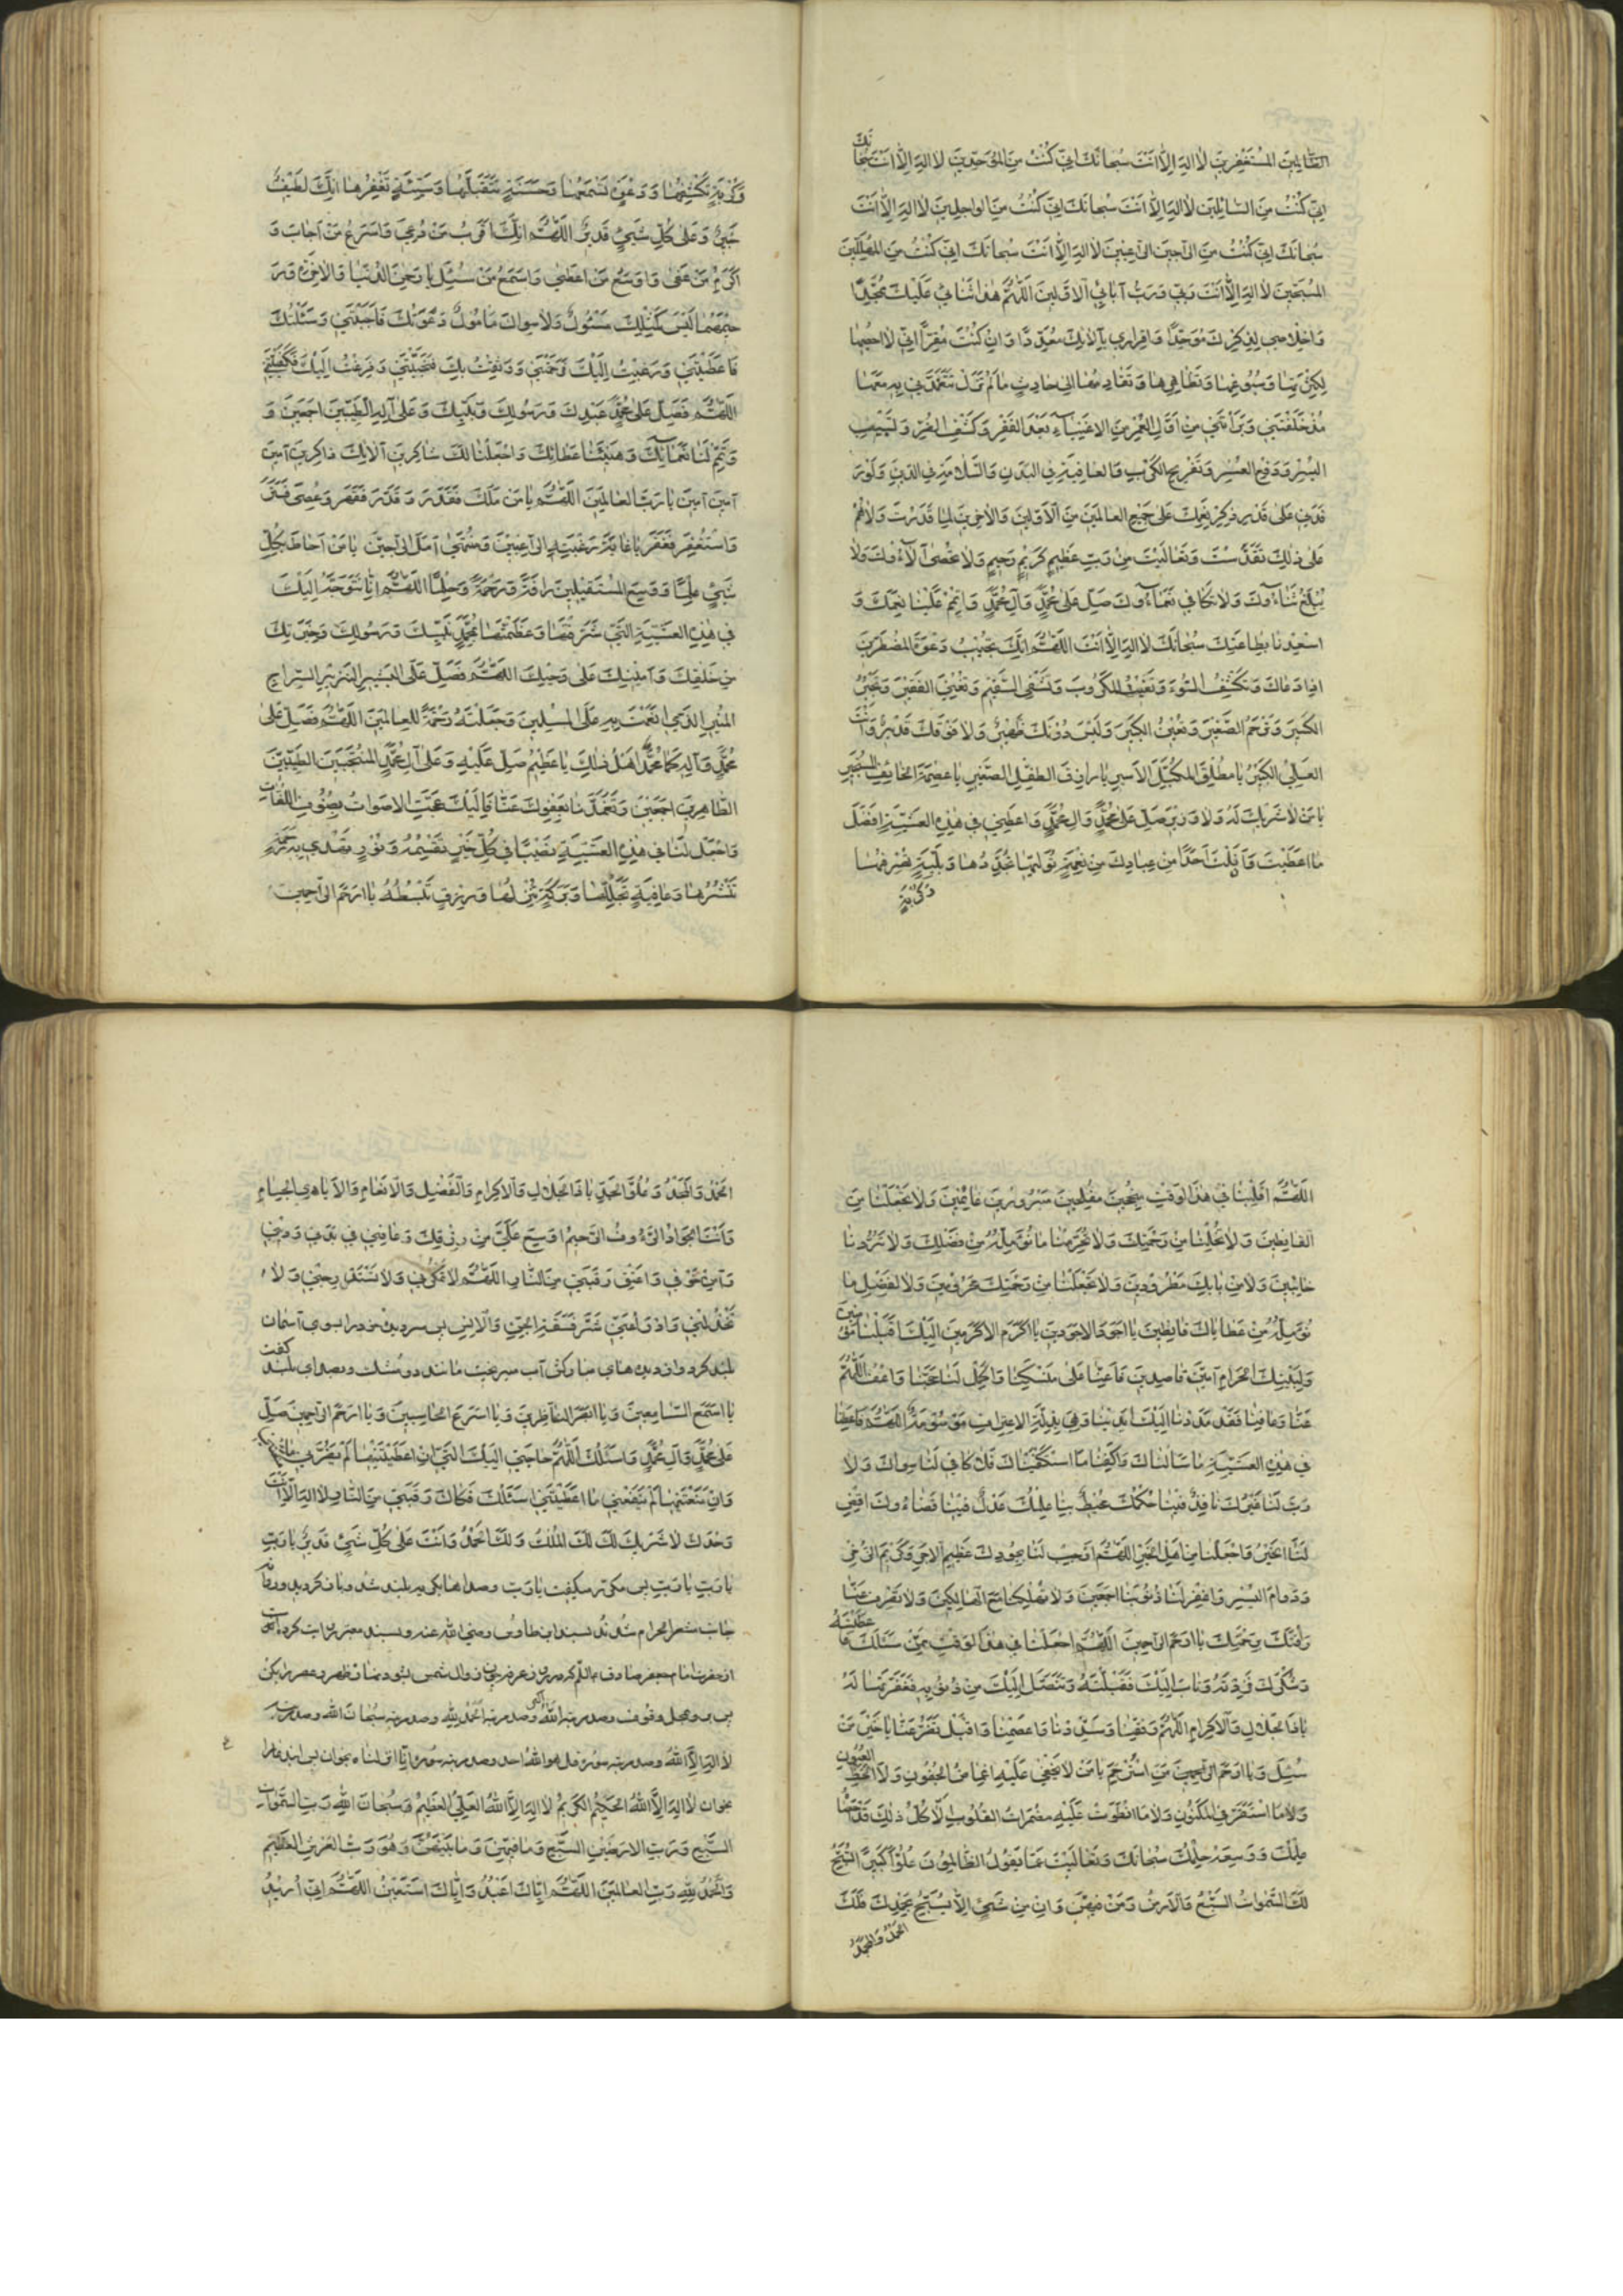 الظالمین المستغفرین لا اله الا انت سبحانک انی کنت من الموحدین لا اله الا انت سبحانک
انی کنت من السائلین لا اله الا انت سبحانک انی کنت من الواجلین لا اله الا انت
سبحانک انی کنت من الراجین الراغبین لا اله الا انت سبحانک انی کنت من المهللین
المسبحین لا اله الا انت ربی و رب آبائی الاولین اللهم هذا ثنائی علیک ممجدا
و اخلاصی لذکرک موحدا و اقراری بآلائک معددا و ان کنت مقرا انی لا احصیها
لکثرتها و سبوغها و تظاهرها و تقادمها الی حادث ما لم تزل تتعهدنی به معها
مذ خلقتنی و برأتنی من اول العمر من الاغنیاء بعد الفقر و کشف الضر و تسبیب
الیسر و دفع العسر و تفریج الکرب و العافیة فی البدن و السلامة فی الدین و لو ر
فدنی علی قدر ذکر نعمک علی جمیع العالمین من الاولین و الاخرین لما قدرت ولا هم
علی ذلک تقدست و تعالیت من رب عظیم کریم رحیم ولا تحصی آلاؤک ولا
یبلغ ثناؤک ولا تکافی نعماؤک صل علی محمد و آل محمد و اتمم علینا نعمک و
اسعدنا بطاعتک سبحانک لا اله الا انت اللهم انک تجیب دعوة المضطرین
اذا دعاک و تکشف السوء و تغیث المکروب و تشفی السقیم و تغنی الفقیر و تجبر
الکسیر و ترحم الصغیر و تعین الکبیر و لیس دونک ظهیر ولا فوقک قدیر و انت
العلی الکبیر یا مطلق المکبل الاسیر یا رازق الطفل الصغیر یا عصمة الخایف المستجیر
یا من لا شریک له ولا وزیر صل علی محمد و ال محمد و اعطنی فی هذه العشیة افضل
ما اعطیت و انلت احدا من عبادک من نعمة تولیها تجددها و بلیة تصرفها
وکربة
وکربة تکشفها و دعوة تسمعها و حسنة تتقبلها و سیئة تغفرها انک لطیف
خبیر و علی کل شیء قدیر اللهم انک اقرب من دعی و اسرع من اجاب و
اکرم من عفی و اوسع من اعطی و اسمع من سئل یا رحمن الدنیا والاخرة و ر
حیمهما لیس کمثلک مسئول ولا سواک مامول دعوتک فاجبتنی و سئلتک
فاعطیتنی و رغبت الیک فرحمتنی و وثقت بک فنجیتنی و فزعت الیک فکفیتنی
اللهم فصل علی محمد عبدک و رسولک و نبیک و علی آله الطیبین اجمعین و
و تمم لنا نعمائک و هنئنا عطائک و اجعلنا لک شاکرین آلائک ذاکرین آمین
آمین آمین یا رب العالمین اللهم یا من ملک فقدر و قدر فقهر و عصی فستر
و استغفر فغفر یا غایة رغبة الراغبین و منتهی امل الراجین یا من احاط بکل
شیء علما و وسع المستقیلین رافة و رحمة و حلما اللهم انا نتوجه الیک
فی هذه العشیة التی شرفتها و عظمتها بمحمد نبیک و رسولک و خیرتک
من خلقک و امینک علی وحیک اللهم فصل علی البشیر النذیر السراج
المنیر الذی انعمت به علی المسلمین و جعلته رحمة للعالمین اللهم فصل علی
محمد و آله کما محمد اهل ذلک یا عظیم صل علیه و علی آل محمد المنتجبین الطیبین
الطاهرین اجمعین و تغمدنا بعفوک عنا فالیک عجت الاصوات بصنوف اللغات
و اجعل لنا فی هذه العشیة نصیبا فی کل خیر تقسمه و نور تهدی به و رحمة
تنشرها و عافیة تجللها و برکة تنزلها و رزق تبسطه یا ارحم الراحمین
اللهم اقلبنا فی هذا الوقت منجحین مفلحین مبرورین غانمین ولا تجعلنا من
القانطین ولا تخلنا من رحمتک ولا تحرمنا ما نؤمله من فضلک ولا تردنا
خائبین ولا من بابک مطرودین ولا تجعلنا من رحمتک محرومین ولا لفضل ما
نؤمله من عطایاک قانطین یا اجود الاجودین یا اکرم الاکرمین الیک اقبلنا موقنین
و لبیتک الحرام آمین قاصدین فاعنا علی منسکنا و اکمل لنا حجنا و اعف اللهم
عنا و عافنا فقد مددنا الیک ایدینا و هی بذلة الاعتراف موسومة اللهم فاعطنا
فی هذه العشیة ما سالناک و اکفنا ما استکفیناک فلا کافی لنا سواک ولا
رب لنا غیرک نافذ فینا حکمک محیط بنا علمک عدل فینا قضاؤک اقض
لنا الخیر و اجعلنا من اهل الخیر اللهم اوجب لنا بجودک عظیم الاجر و کریم الذخر
و دوام الیسر و اغفر لنا ذنوبنا اجمعین ولا تهلکنا مع الهالکین ولا تصرف عنا
رافتک و رحمتک یا ارحم الراحمین اللهم اجعلنا فی هذا الوقت ممن سئلک فاعطیته
و شکرک فزدته و تاب الیک فقبلته و تنصل الیک من ذنوبه فغفرتها له
یا ذا الجلال و الاکرام اللهم وفقنا و سددنا و اعصمنا و اقبل تضرعنا یا خیر من
سئل و یا ارحم الراحمین من استرحم یا من لا یخفی علیه اغماض الجفون ولا لحظ العیون
ولا ما استقر فی المکنون ولا ما انطوت علیه مضمرات القلوب الا کل ذلک قد احصاه
علمک و وسعه حلمک سبحانک و تعالیت عما یقول الظالمون علوا کبیرا تسبح
لک السموات السبع و الارض و من فیهن و ان من شیء الا یسبح بحمدک فلک
الحمد والمجد
الحمد والمجد و علو الجد یا ذا الجلال و الاکرام و الفضل و الانعام و الایادی الجسام
و انت الجواد الرؤف الرحیم اوسع علی من رزقک و عافنی فی بدنی و دینی
و آمن خوفی و اعتق رقبتی من النار اللهم لا تمکر بی ولا تستدرجنی ولا
تخذلنی و ادرء عنی شر فسقة الجن و الانس پس سر و دیده خود را بسوی آسمان
بلند کرد و از دیده های مبارکش آب میریخت مانند دو مشک و بصدای بلند گفت
یا اسمع السامعین و یا ابصر الناظرین و یا اسرع الحاسبین و یا ارحم الراحمین صل
علی محمد و آل محمد و اسئلک اللهم حاجتی الیک التی ان اعطیتنیها لم یضرنی ما منعتنی
و ان منعتنیها لم ینفعنی ما اعطیتنی اسئلک فکاک رقبتی من النار لا اله الا انت
وحدک لا شریک لک لک الملک و لک الحمد و انت علی کل شیء قدیر یا رب
یا رب یا رب پس مکرر میگفت یا رب و صداها بگریه بلند شد و بار کردند و روانه
جانب مشعر الحرام شدند سید ابن طاوس رضی الله عنه و بسند معتبر روایت کرده است
از حضرت امام جعفر صادق علیه السلام که در روز عرفه چون زوال شمس شود نماز ظهر و عصر را بکن
پس برو بمحل وقوف و صد مرتبه الله اکبر و صد مرتبه الحمد لله و صد مرتبه سبحان الله و صد مرتبه
لا اله الا الله و صد مرتبه سوره قل هو الله احد و صد مرتبه سوره انا انزلناه بخوان پس این دعا را
بخوان لا اله الا الله الحکیم الکریم لا اله الا الله العلی العظیم و سبحان الله رب السموات
السبع و رب الارضین السبع و ما فیهن و ما بینهن و هو رب العرش العظیم
و الحمد لله رب العالمین اللهم ایاک اعبد و ایاک استعین اللهم انی ارید